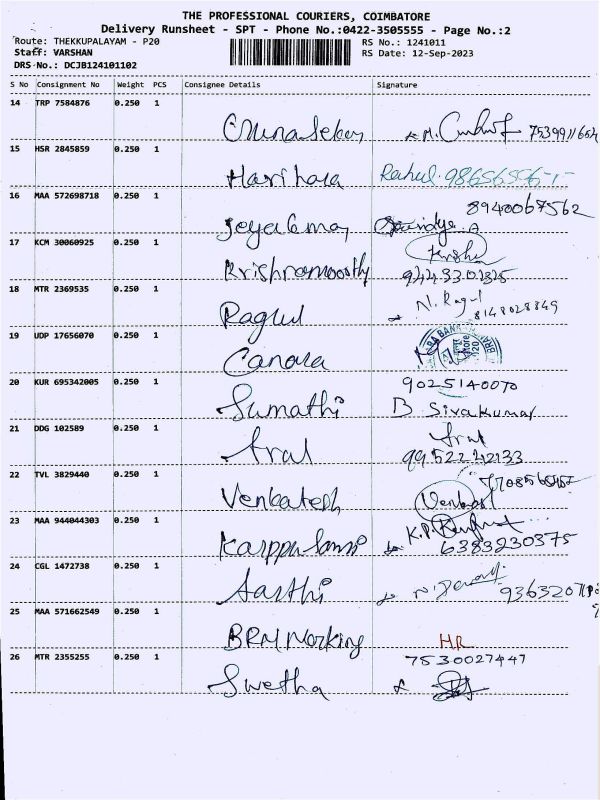 THE PROFESSIONAL COURIERS, COIMBATORE
Delivery Runsheet - SPT - Phone No.:0422-3505555 - Page No.:2
Route: THEKKUPALAYAM - P20 RS No.: 1241011
Staff: VARSHAN RS Date: 12-Sep-2023
DRS No.: DCJB124101102
S No Consignment No Weight PCS Consignee Details Signature
14 TRP 7584876 0.250 1
15 HSR 2845859 0.250 1
Harihara Rahul
16 MAA 572698718 0.250 1
8940067562
17 KCM 30060925 0.250 1
Krishnamoorthy
18 MTR 2369535 0.250 1
Ragul N. Ragul
8148028849
19 UDP 17656070 0.250 1
Canara
20 KUR 695342005 0.250 1 9025140070
Sumathi B Sivakumar
21 DDG 102589 0.250 1
Arul Arul
9952242133
22 TVL 3829440 0.250 1
Venkatesh Venkat
23 MAA 944044303 0.250 1
6383230375
24 CGL 1472738 0.250 1
Aarthi
25 MAA 571662549 0.250 1
BRM Working HR
26 MTR 2355255 0.250 1 7530027447
Swetha